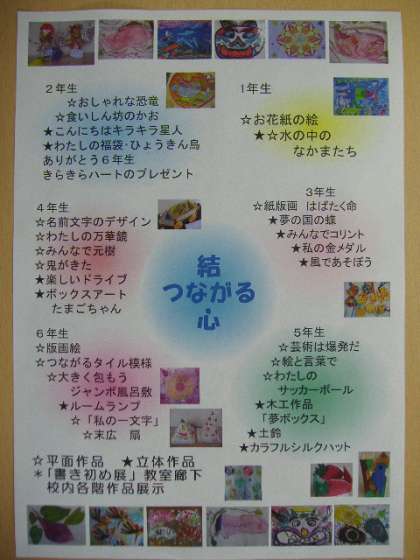 2年生
☆おしゃれな恐竜
☆食いしん坊のかお
★こんにちはキラキラ星人
★わたしの福袋・ひょうきん鳥
ありがとう6年生
きらきらハートのプレゼント
1年生
☆お花紙の絵
★☆水の中の
なかまたち
4年生
☆名前文字のデザイン
☆わたしの万華鏡
☆みんなで元樹
☆鬼がきた
★楽しいドライブ
★ボックスアート
たまごちゃん
3年生
☆紙版画 はばたく命
★夢の国の蝶
★みんなでコリント
★私の金メダル
★風であそぼう
結
つながる
心
6年生
☆版画絵
☆つながるタイル模様
☆大きく包もう
ジャンボ風呂敷
★ルームランプ
☆「私の一文字」
☆末広 扇
5年生
☆芸術は爆発だ
☆絵と言葉で
☆わたしの
サッカーボール
★木工作品
「夢ボックス」
★土鈴
★カラフルシルクハット
☆平面作品 ★立体作品
＊「書き初め展」教室廊下
校内各階作品展示